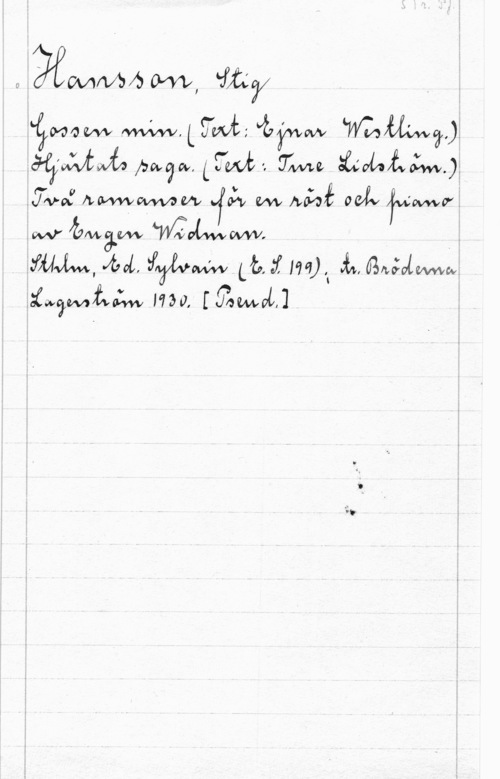 Hansson, Stig
Gossen min. (Text: Ejnar Westling.)
Hjärtats saga. (Text: Ture Lidström.)
Två romanser för en röst och piano
av Eugen Widman.
Sthlm, Ed. Sylvain (E. S. 199); tr. Bröderna
Lagerström 1930. [Pseud.]